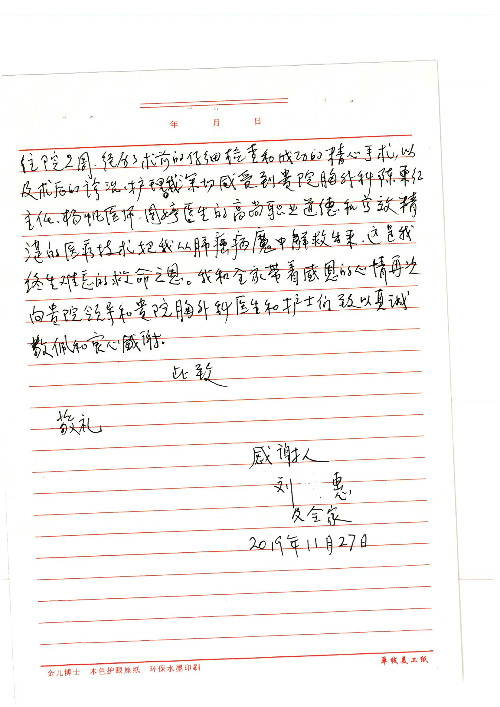 年 月 日
住院2周,经历了术前的仔细检查和成功的精心手术,以
及术后的诊治、护理我深切感受到贵院胸外科陈東红
主任、杨帆医师、周婷医生的高尚职业道德和高效精
湛的医疗技术把我从肺癌病魔中解救生来,这是我
终生难忘的救命之恩。我和全家带着感恩的心情再次
向贵院领导和贵院胸外科医生和护士们致以真诚
敬佩和衷心感谢.
此致
敬礼
感谢人
刘 惠
及全家
2019年11月27日
金儿博士 本色护眼原纸 环保水墨印刷
单线美工纸